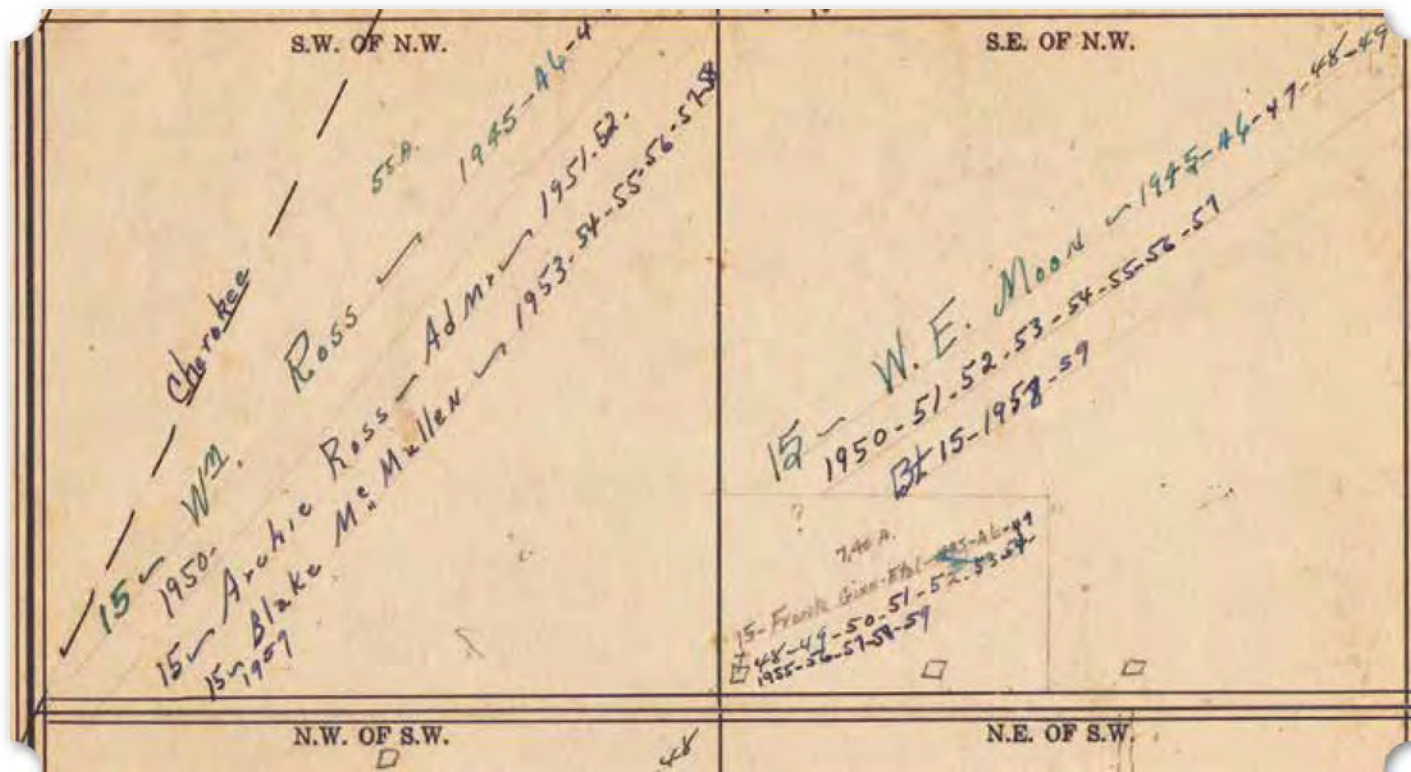 S.W. OF N.W.
Cherokee
55A.
15 Wm. Ross 1945-46-4
1950-
15 Archie Ross - Admr 1951.52.
15 Blake Mc Mullen 1953-54-55-56-57-58
1959
S.E. OF N.W.
15 W. E. Moon 1945-46-47-48-49
1950-51-52-53-54-55-56-57
15-1958-59
?
7.40 A.
15-Frank 45-46-47
48-49-50-51-52-53-54-
1955-56-57-58-59
N.W. OF S.W.
48
N.E. OF S.W.